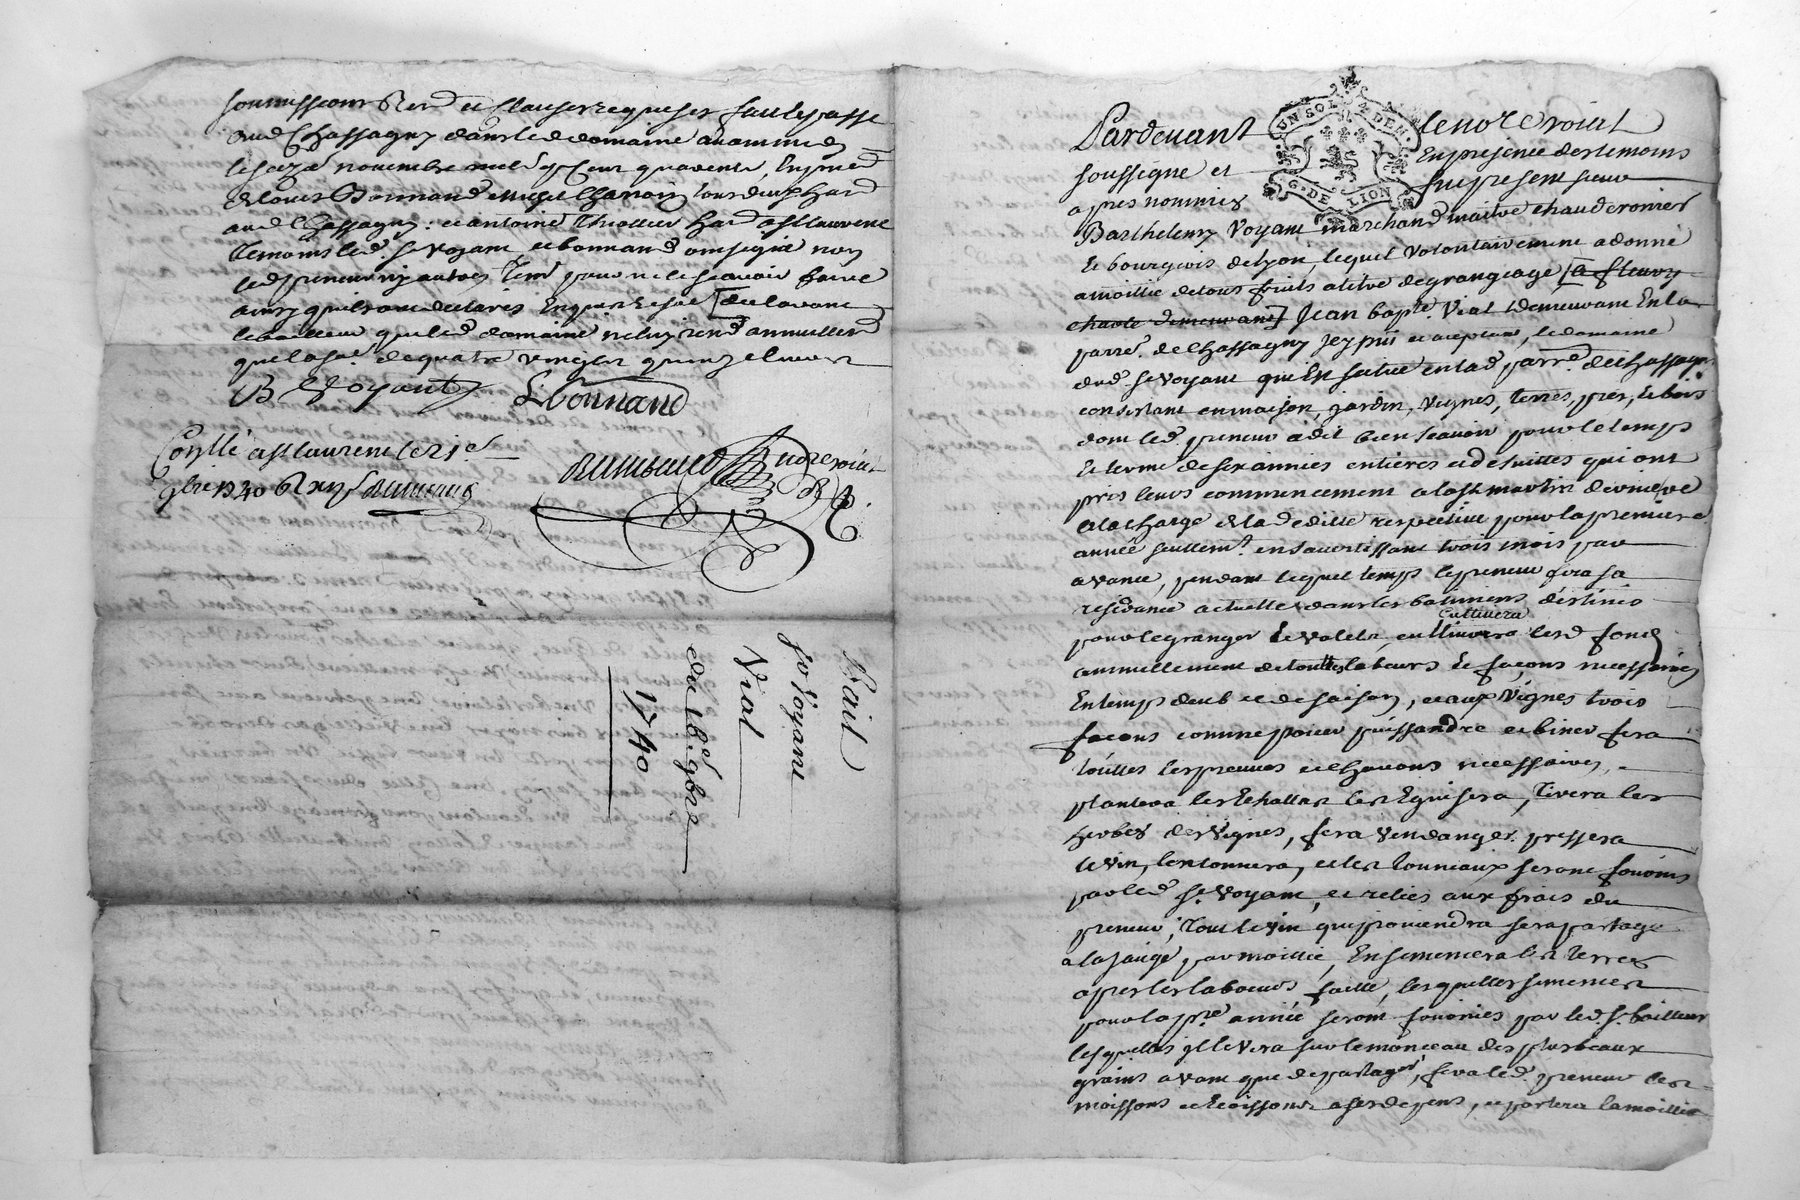 soumissions et clauses requises fait et passé
aud Chassagny dans led domaine avant midy
le seize novembre mil sept cent quarente, En pnce
de Louis Bonnand, tous deux hab
aud Chassagny: et antoine hab a St Laurent
Temoins led. sr Voyant et bonnand ont signé non
led preneur ny autre Tem pour ne le scavoir faire
ainsy quils ont declarés Enquis
le bailleur que led domaine ne luy rend annuellem
que la so. de quatre vingts quinze livres
B Voyant LBonnand
Conllé a St Laurent le 21e
9bre 1740 Rx Raimbaud
Raimbaud no.re roial
Bail
sr Voyant
Vial
du 16e 9bre
1740
Pardevant le no.re roial
UN SOL 4 DEN.
G. DE LION
soussigné et En presence des temoins
apres nommés fut present sieur
Barthelemy Voyant marchand maitre chauderonier
et bourgeois de Lyon, lequel volontairement a donné
a moitié de tous fruits a titre de grangeage [a fleury
chacote demeurant] Jean bapte. Vial demeurant En la
parre. de Chassagny Icy pnt et acceptant, le domaine
dud. sr Voyant qui Est scitué en lad. parre. de Chassagny
consistant en maison, jardin, vignes, terres, prés, et bois
dont led. preneur a dit bien scavoir pour le temps
et terme de six années entieres et de suittes qui ont
pris leurs commencement a la St martin derniere
a la charge de la deditte respective pour la premiere
année seullemt. en s'avertissant trois mois par
avance, pendant lequel temps le preneur fera sa
residance actuelle dans les batimens déstinés
cultivera
pour le granger et valets, cultivera lesd. fond
annuellement de touttes labeurs et façons necessaires
En temps deub et de saison, et aux vignes trois
façons comme poiser puissandre et biner fera
touttes les preuves et chavons necessaires,
plantera les Echallats les Eguisera, Tirera les
herbes des vignes, fera vendanger pressera
le vin, l'entonnera, et les tonneaux seront fournis
par led. sr. Voyant, et reliés aux frais du
preneur, Tout le vin qui proviendra sera partagé
a la jauge par moitié, Ensemencera les Terres
apres les labeurs faitte, lesquelles semences
pour la pre. année seront fournies par led. sr. bailleur
lesquelles il levera sur le monceau des plus beaux
grains avant que de partager, fera led. preneur les
moissons et Ecoissons a ses depens, et portera la moitié